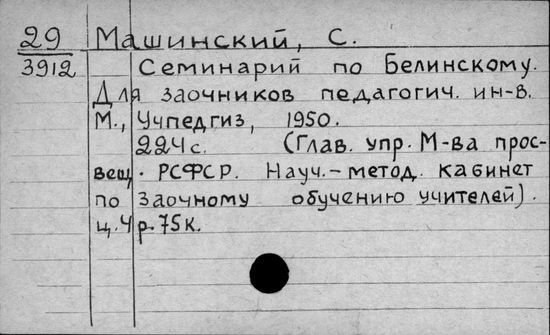 29 Машинский, С.
3912 Семинарий по Белинскому.
Для заочников педагогич. ин-в.
М., Учпедгиз, 1950.
224 с. (Глав. упр. М-ва прос-
вещ. РСФСР. Науч.-метод. кабинет
по заочному обучению учителей).
ц. 4 р. 75 к.